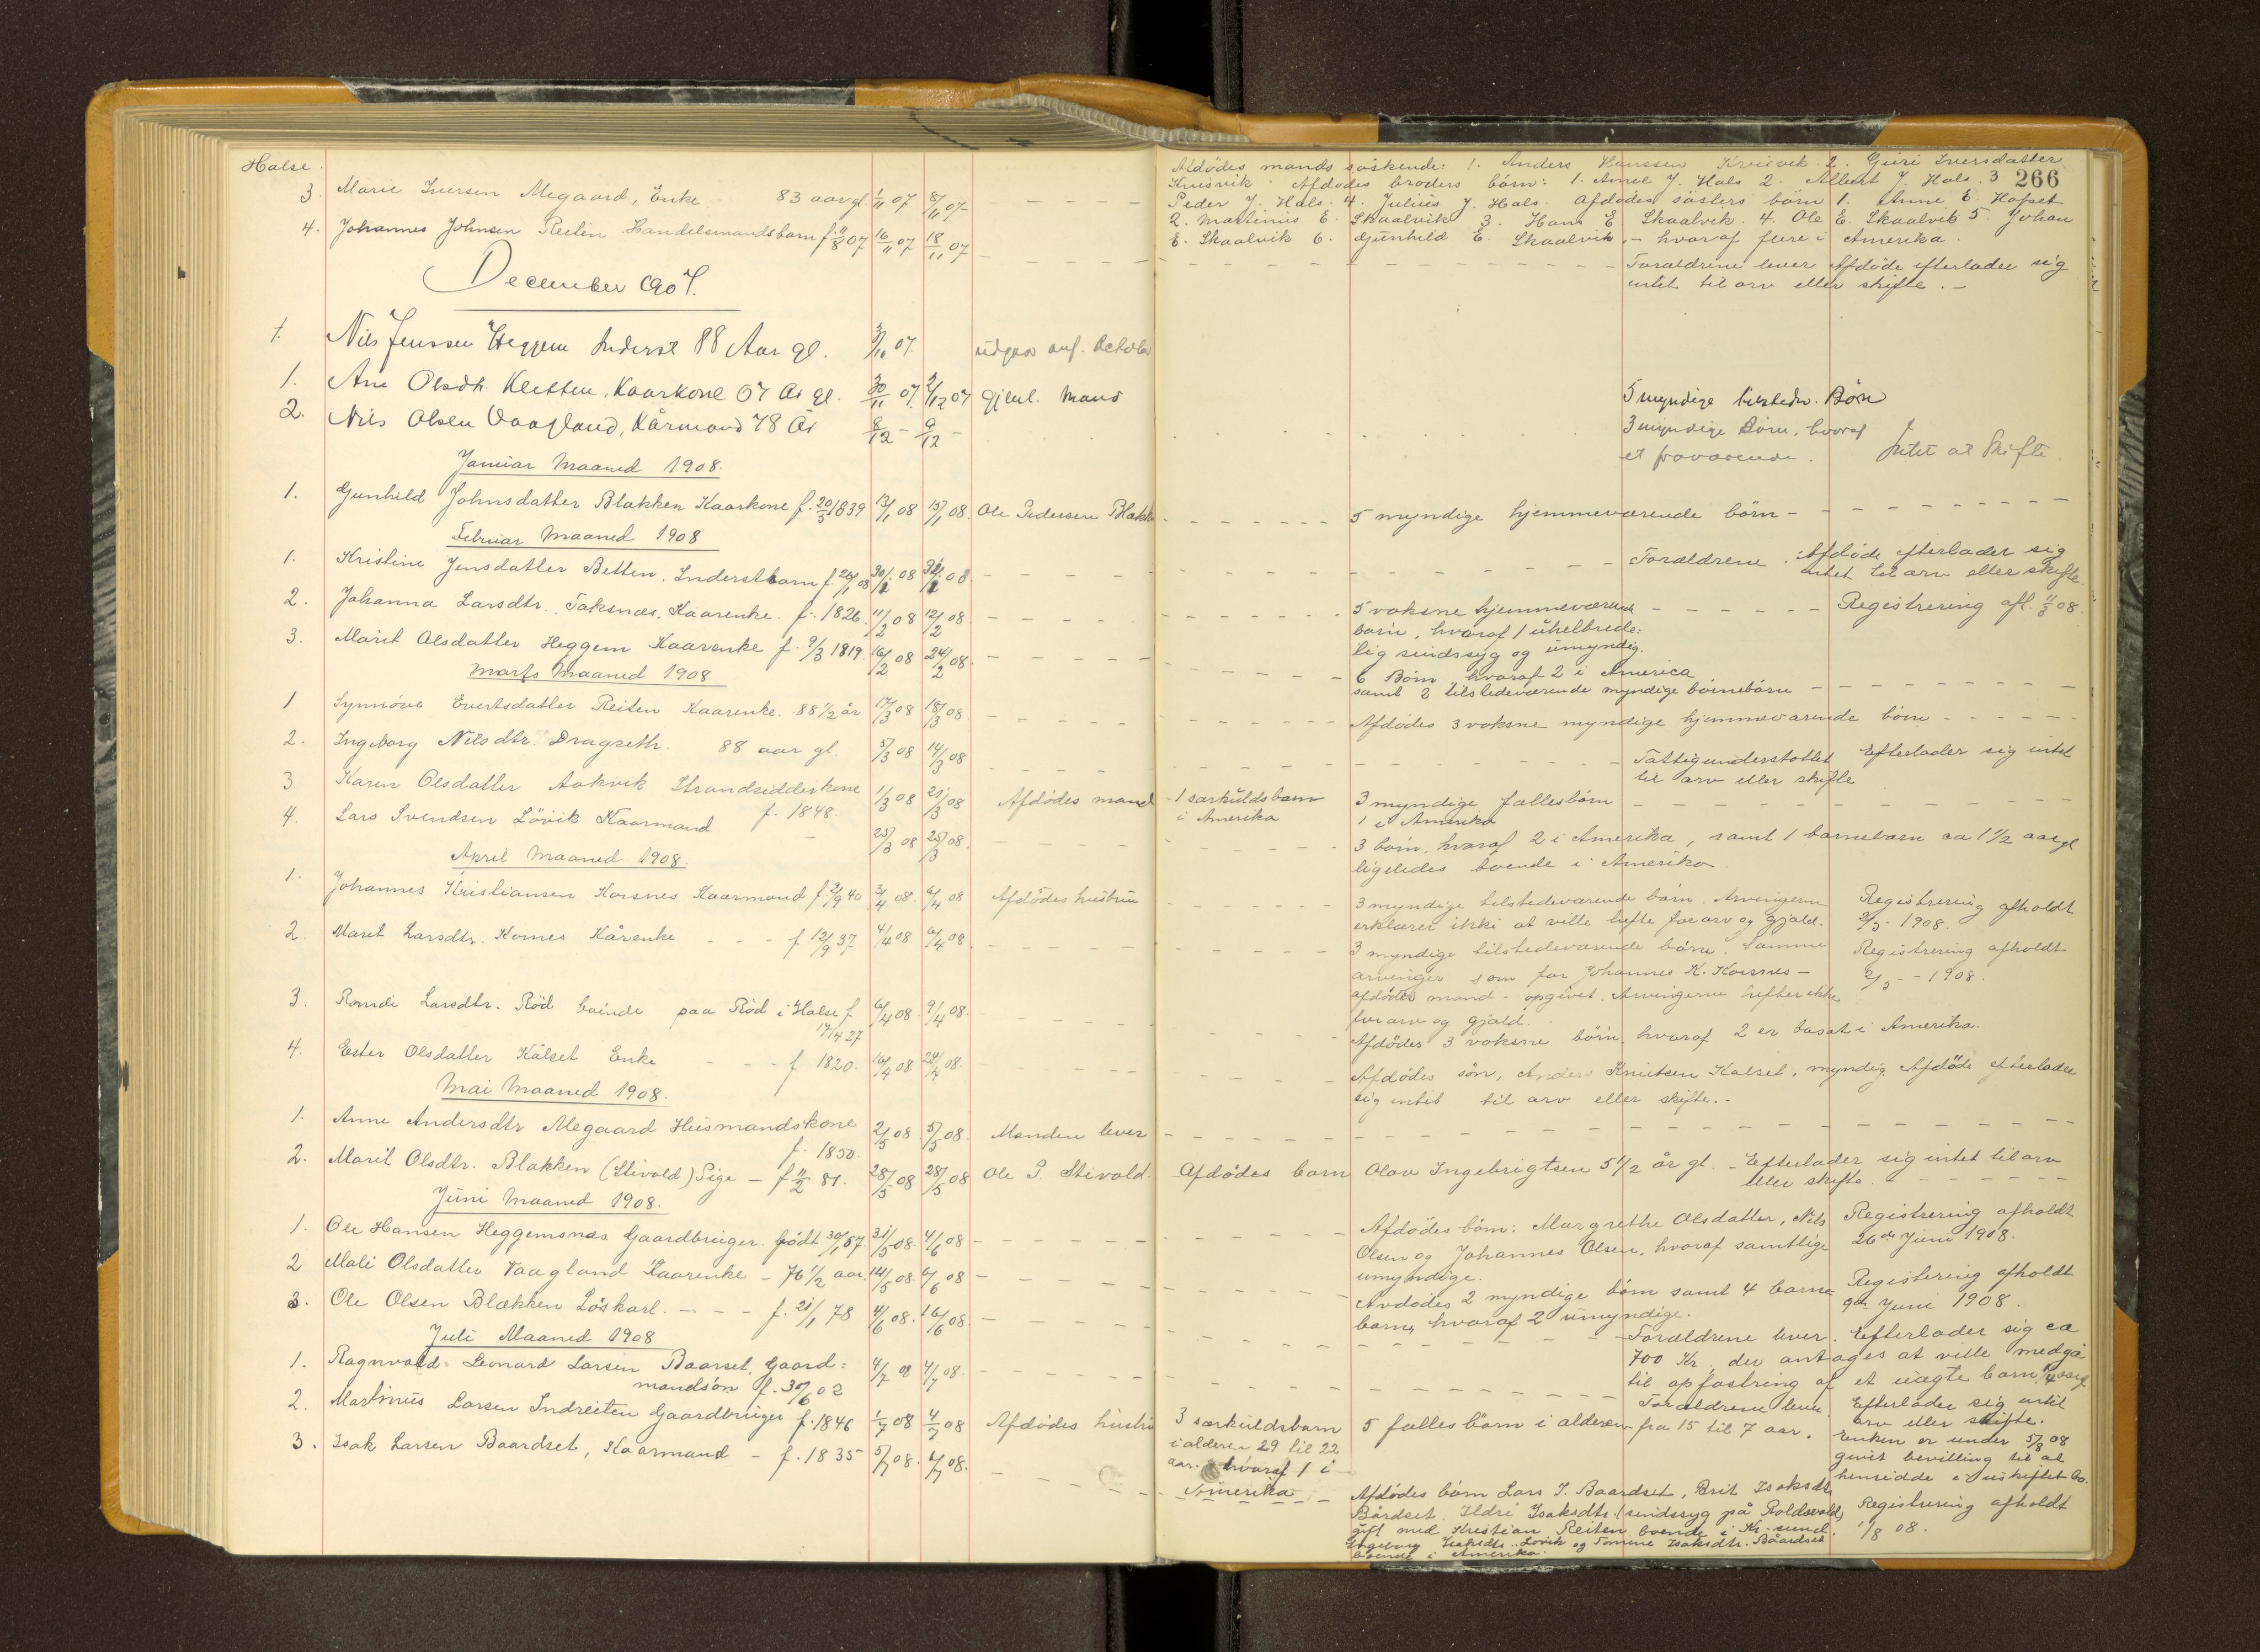 Halse.
3. Marie Iversen Megaard, Enke 83 aar gl. 1/11 07 8/11 07
4. Johannes Johnsen Reiten Handelsmandsbarn f. 11/8 07 16/11 07 18/11 07
December 1907.
1. Nils Jenssen Heggem Inderst 88 Aar gl. 3/10 07. udgaar anf. October
1. Ane Olsdtr. Kletten, Kaarkone 67 År gl. 30/11 07. 2/12 07 Gjenl. Mand
2. Nils Olsen Vaagland, Kårmand 78 År 8/12 - 9/12 -
Januar Maaned 1908.
1. Gunhild Johnsdatter Blakken Kaarkone f. 20/5 1839 13/1 08 15/1 08. Ole Pedersen Blakken
Februar Maaned 1908
1. Kristine Jensdatter Betten. Inderstbarn f. 26/1 08 30/1 08 31/1 08
2. Johanna Larsdtr. Taksnæs, Kaarenke. f. 1826. 11/2 08 12/2 08
3. Marit Olsdatter Heggem Kaarenke f. 9/3 1819. 16/2 08 24/2 08.
Marts Maaned 1908
1 Synnöve Evertsdatter Reiten Kaarenke. 88 1/2 år 17/3 08 18/3 08.
2. Ingeborg Nilsdtr. Dragseth. 88 aar gl. 5/3 08 14/3 08
3. Karen Olsdatter Aakvik Strandsidderkone 1/3 08 21/3 08 Afdödes mand
f. 1848.
4. Lars Svendsen Lövik Kaarmand - 23/3 08 25/3 08.
April Maaned 1908.
1. Johannes Kristiansen Korsnes Kaarmand f. 2/9 40 3/4 08. 6/4 08 Afdödes hustru
2. Marit Larsdtr. Kornes Kårenke - - - f 12/9 37 4/4 08 6/4 08.
3. Romdi Larsdtr. Röd boende paa Röd i Halse f 6/4 08. 9/4 08.
17/4 27
4. Ester Olsdatter Kålset Enke - - - f 1820. 16/4 08. 24/4 08.
Mai Maaned 1908.
1. Anne Andersdtr Megaard Husmandskone 2/5 08 5/5 08. Manden lever
f. 1850.
2. Marit Olsdtr. Blakken (Stivold) Pige - f 11/2 81. 28/5 08 28/5 08 Ole P. Stivold.
Juni Maaned 1908.
1. Ole Hansen Heggemsnæs Gaardbruger. födt 30/1 67. 31/5 08. 4/6 08
2 Mali Olsdatter Vaagland Kaarenke - 76 1/2 aar. 14/5 08. 6/6 08
3. Ole Olsen Blækken Löskarl. - - - f. 21/1 78 4/6 08. 16/6 08
Juli Maaned 1908
1. Ragnvald Leonard Larsen Baarset, Gaard=
mandsön f. 30/6 02 4/7 08 4/7 08.
2. Martinus Larsen Indreiten Gaardbruger f. 1846 1/7 08 4/7 08 Afdödes hustru
3. Isak Larsen Baardset, Kaarmand - f. 1835 5/7 08. 6/7 08.
266
Afdödes mands söskende: 1. Anders Hanssen Kruisvik 2. Guri Iversdatter
Kruisvik. Afdödes broders börn: 1. Arnol J. Hals 2. Albert J. Hals. 3
Peder J. Hals. 4. Julius J. Hals. Afdödes sösters börn 1. Anne E. Hafset
2. Martinus E. Skaalvik 3. Hans E Skaalvik. 4. Ole E. Skaalvik 5. Johan
E. Skaalvik 6. Gunhild E. Skaalvik - hvoraf flere i Amerika.
Forældrene lever Afdöde efterlader sig
intet til arv eller skifte. -
5 myndige tilstedv. Börn
3 myndige Börn, hvoraf
et fraværende. Intet at Skifte
5 myndige hjemmeværende börn -
Forældrene. Afdöde efterlader sig
intet til arv eller skifte.
5 voksne hjemmeværende Registrering afh. 11/3 08.
börn, hvoraf 1 uhelbrede=
lig sindssyg og umyndig.
6 Börn hvoraf 2 i America
samt 2 tilstedeværende myndige börnebörn
Afdödes 3 voksne myndige hjemmeværende börn
Fattigunderstöttet Efterlader sig intet
til arv eller skifte
1 særkuldsbarn 3 myndige fællesbörn
i Amerika 1 i Amerika
3 börn, hvoraf 2 i Amerika, samt 1 barnebarn ca 1 1/2 aar gl
ligeledes boende i Amerika.
3 myndige tilstedeværende börn. Arvingerne Registrering afholdt
erklærer ikke at ville hefte for arv og gjæld. 2/5 - 1908.
3 myndige tilstedeværende börn. Samme Registrering afholdt
arvinger som for Johannes K. Korsnes - 2/5 - 1908.
afdödes mand - opgivet. Arvingerne hefter ikke
for arv og gjæld.
Afdödes 3 voksne börn, hvoraf 2 er bosat i Amerika.
Afdödes sön, Anders Knutsen Kalset, myndig. Afdöde efterlader
sig intet til arv eller skifte. -
Afdödes barn Olav Ingebrigtsen 5 1/2 år gl. - Efterlader sig intet til arv
eller skifte.
Afdödes börn: Margrethe Olsdatter, Nils Registrering afholdt
Olsen og Johannes Olsen, hvoraf samtlige 26de Juni 1908.
umyndige.
Avdödes 2 myndige börn samt 4 barne= Registering afholdt
barn, hvoraf 2 umyndige. 9de Juni 1908.
Forældrene lever. Efterlader sig ca
700 Kr. der antages at ville medgå
til opfostring af et uægte barn,
Forældrene lever. Efterlader sig intet
arv eller skifte.
3 særkuldsbarn 5 fællesbörn i alderen fra 15 til 7 aar. Enken er under 5/8 08
i alderen 29 til 22 givet bevilling til at
aar. hvoraf 1 i hensidde i uskiftet bo.
Amerika
Afdödes börn Lars I. Baardset, Brit Isaksdtr
Bårdset. Ildri Isaksdtr. (sindssyg på Roldsvold, Registrering afholdt
gift med Kristian Reiten boende i Kr.sund. 1/8 08.
Ingeborg Isaksdtr. Lövik og Tomine Isaksdtr. Båardset
boende i Amerika.